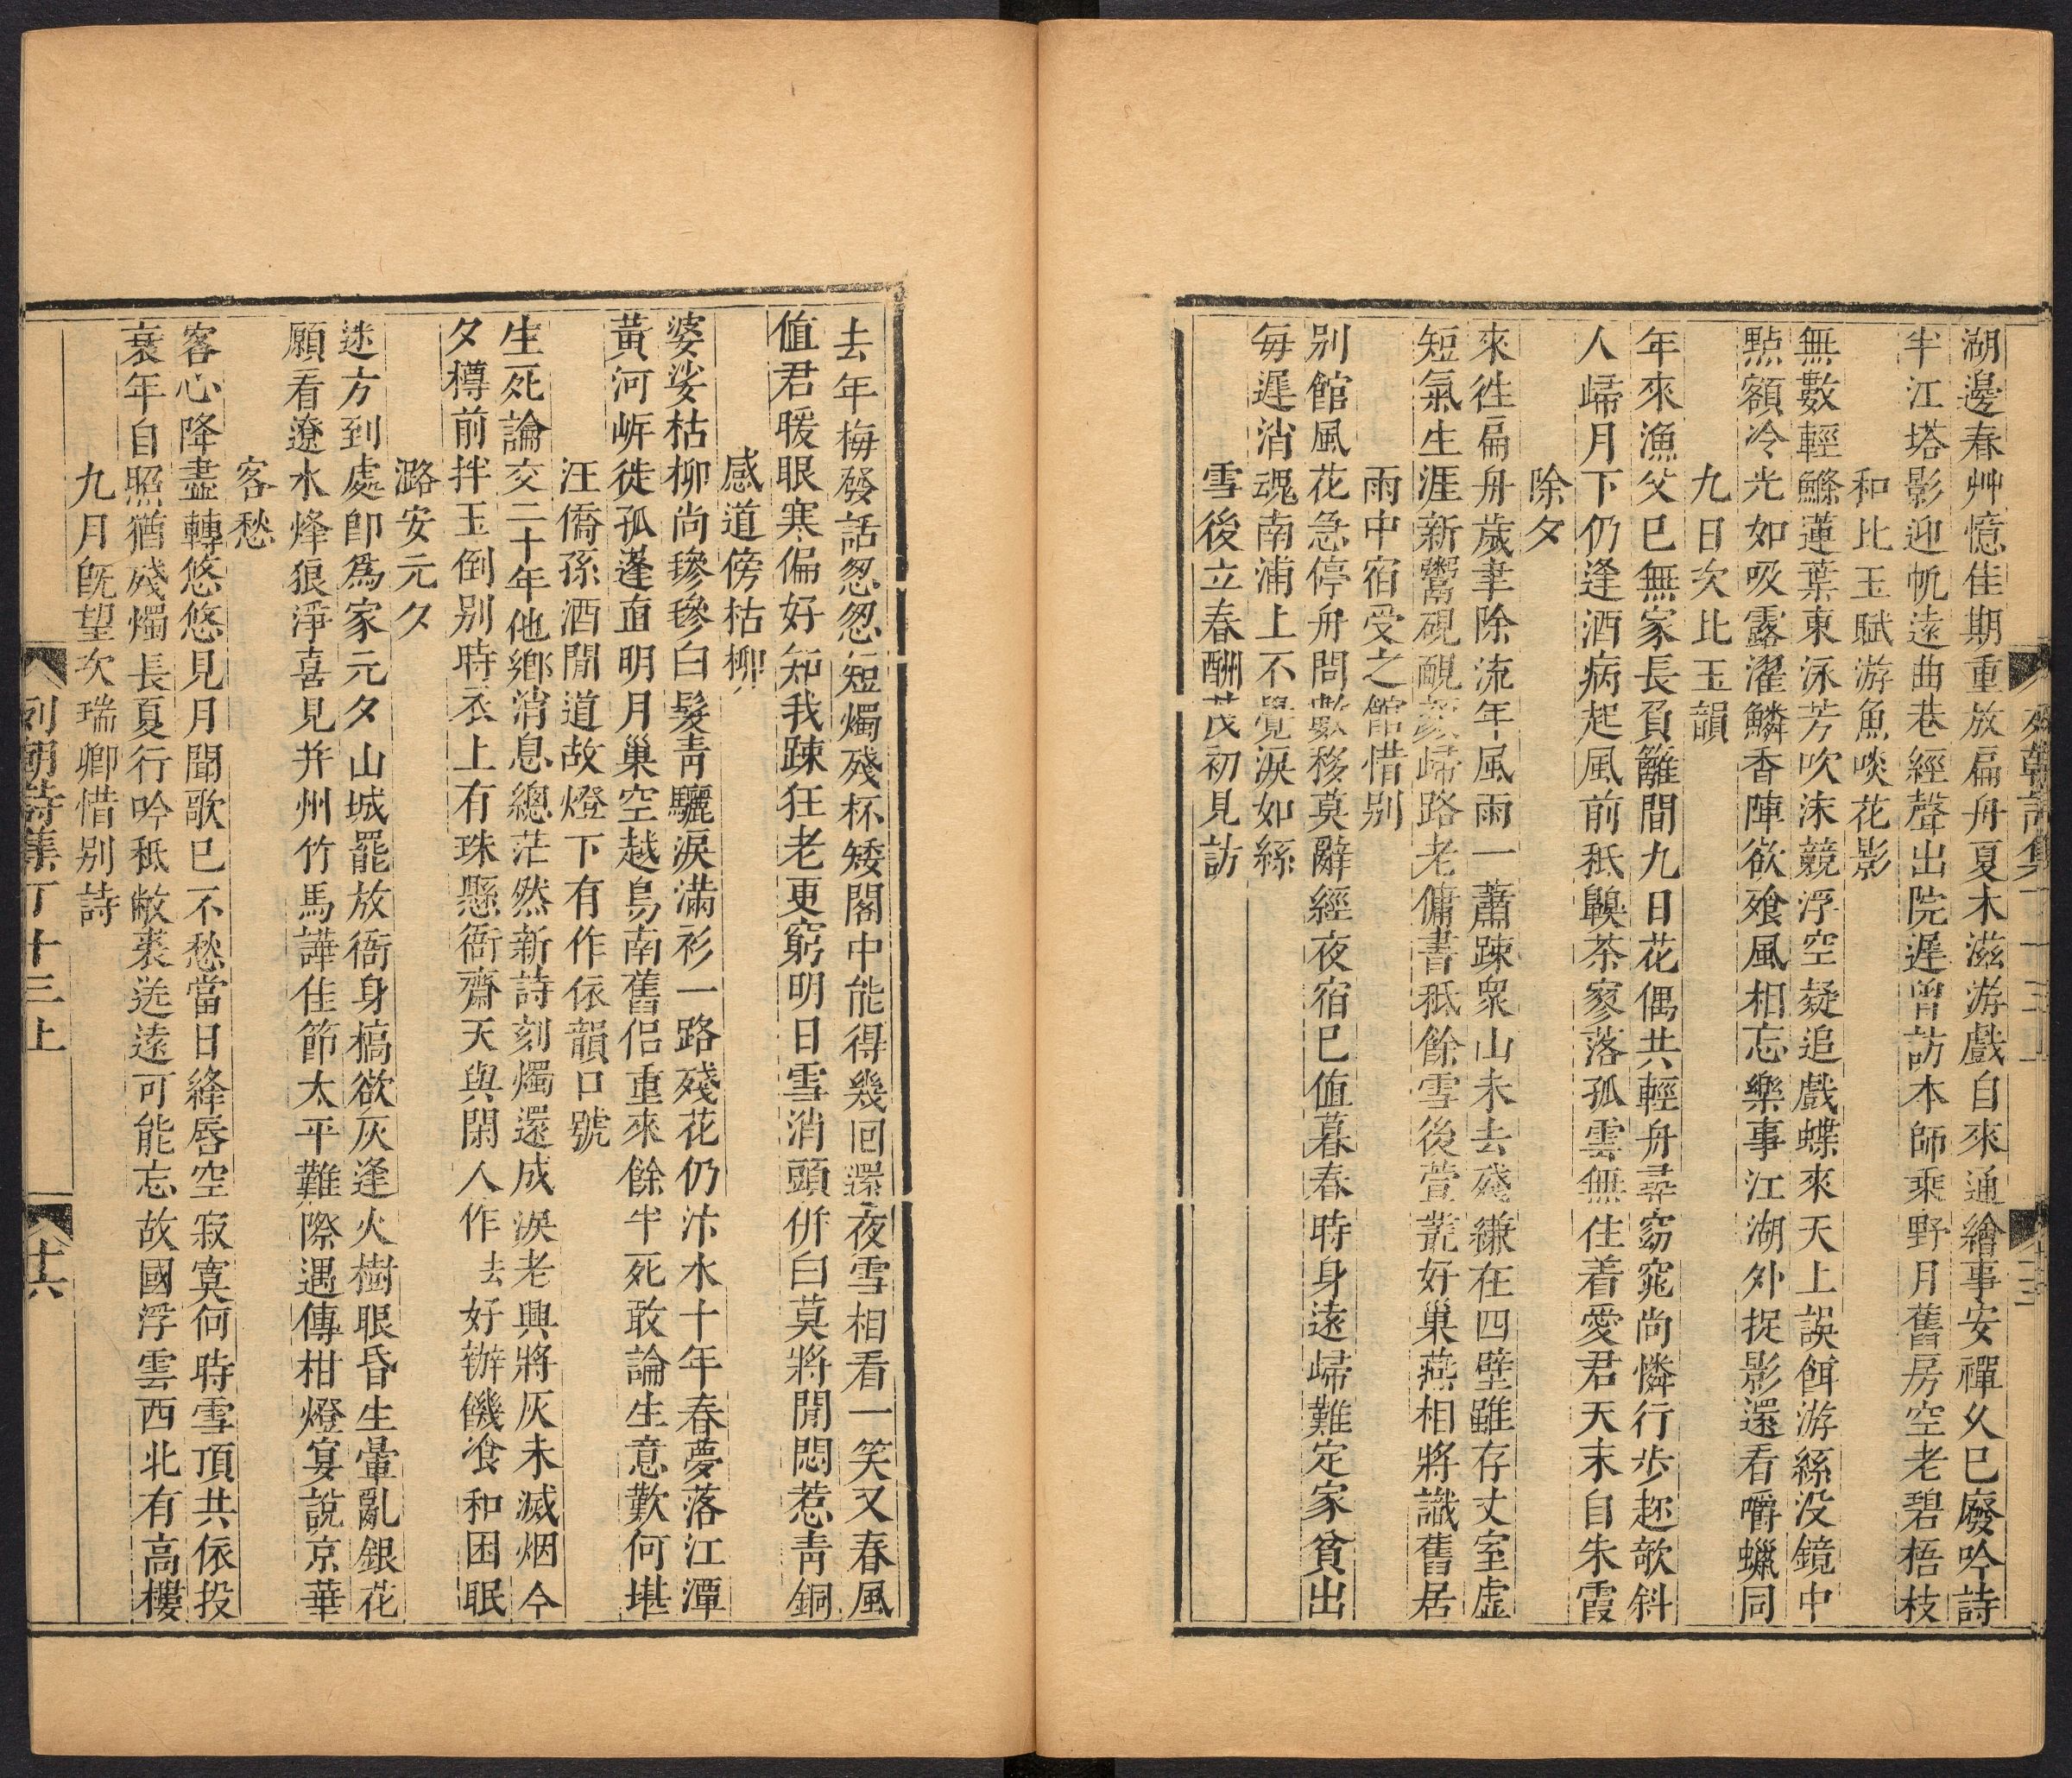 湖邊春艸憶佳期重放扁舟夏木滋游戲自來通繪事安禪久已廢吟詩
半江塔影迎帆遠曲巷經聲出院遲曾訪本師乘野月舊房空老碧梧枝
和比玉賦游魚啖花影
無數輕鰷蓮葉東泳芳吹沫競浮空疑追戲蝶來天上誤餌游絲没鏡中
㸃額冷光如吸露濯鱗香陣欲飱風相忘樂事江湖外捉影還看嚼蠟同
九日次比玉韻
年來漁父已無家長負籬間九日花偶共輕舟尋窈窕尚憐行步趂欹斜
人歸月下仍逢酒病起風前秖齅茶寥落孤雲無住着愛君天末自朱霞
除夕
來往扁舟歲聿除流年風雨一蕭踈衆山未去殘縑在四壁雖存丈室虛
短氣生涯新鬻硯靦顔歸路老傭書秖餘雪後萱叢好巢燕相將識舊居
雨中宿受之館惜别
别館風花急停舟問數移莫辭經夜宿已值暮春時身遠歸難定家貧出
每遲消魂南浦上不覺淚如絲
雪後立春酬茂初見訪
去年梅發話怱怱短燭殘杯矮閣中能得幾回還夜雪相看一笑又春風
值君暖眼寒偏好知我踈狂老更窮明日雪消頭併白莫將閒悶惹青銅
感道傍枯柳
婆娑枯柳尚毿毿白髮青驪淚滿衫一路殘花仍汴水十年春夢落江潭
黃河㟁徙孤蓬直明月巢空越鳥南舊侶重來餘半死敢論生意歎何堪
汪僑孫酒閒道故燈下有作依韻口號
生死論交二十年他鄉消息總茫然新詩刻燭還成淚老興將灰未滅烟今
夕樽前拌玉倒别時衣上有珠懸衙齋天與閑人作去好辦饑飡和困眠
潞安元夕
迷方到處卽爲家元夕山城罷放衙身槁欲灰逢火樹眼昏生暈亂銀花
願看遼水烽狼淨喜見并州竹馬譁佳節太平難際遇傳柑燈宴說京華
客愁
客心降盡轉悠悠見月聞歌已不愁當日絳唇空寂寞何時雪頂共依投
衰年自照猶殘燭長夏行吟秖敝裘迯遠可能忘故國浮雲西北有高樓
九月旣望次瑞卿惜别詩
列朝詩集丁十三上
十六